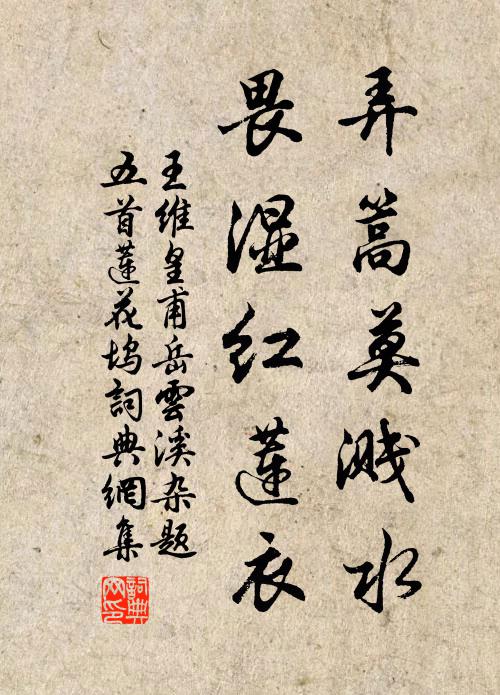 弄篙莫溅水
畏湿红莲衣
王维皇甫岳雲溪杂题
五首莲花坞詞典網集
詞典
网印